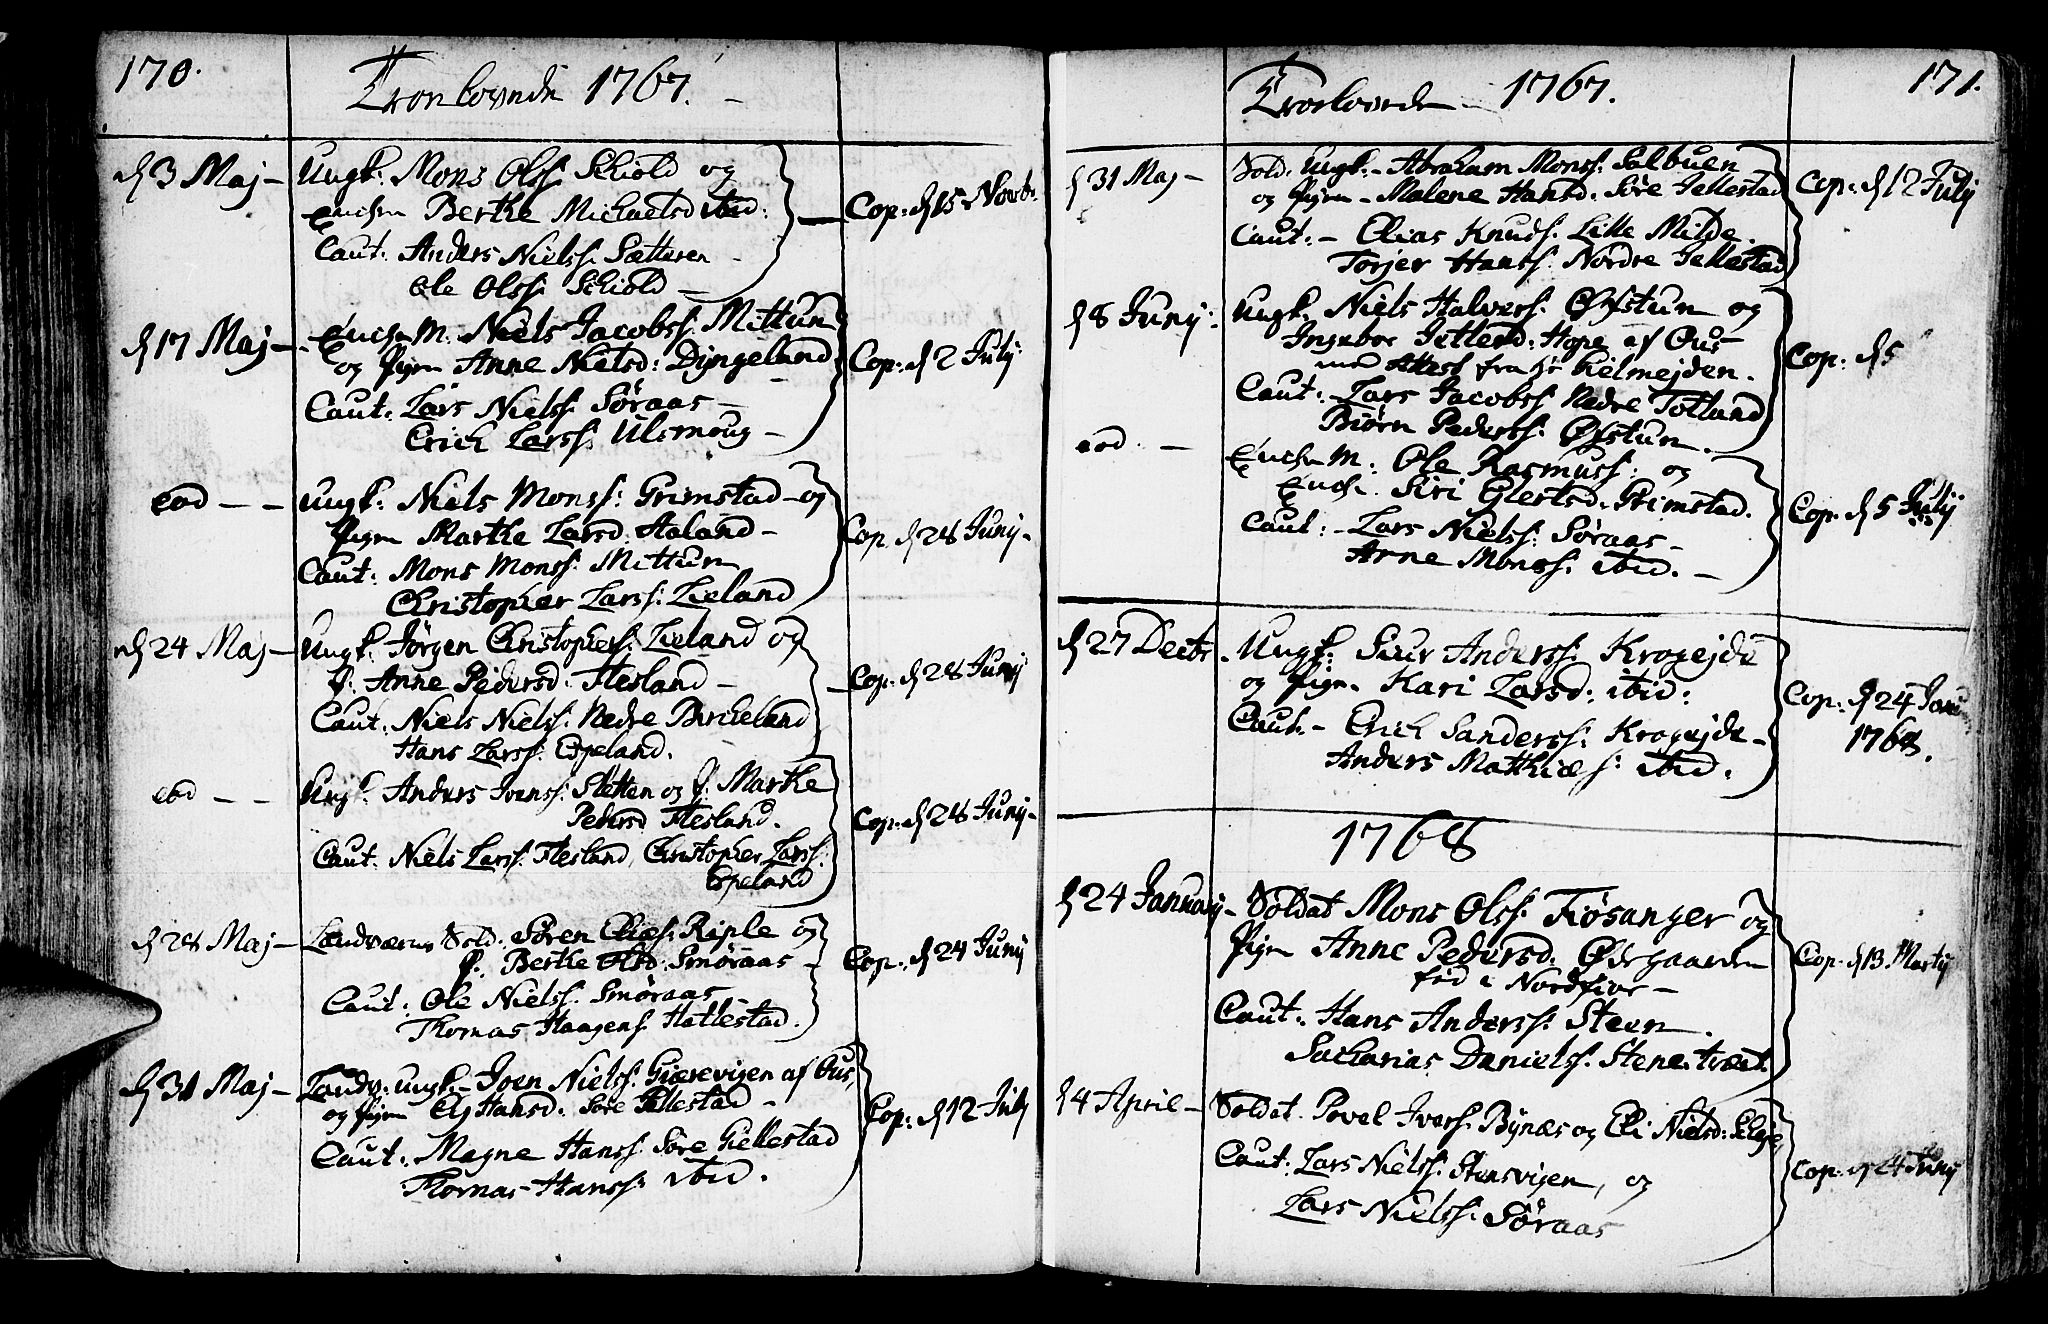 170.
Troelovede 1767.
d 3 Maj - Ungk: Mons Olss: Schiold og
Enchen Berthe Michaelsd ibid:
Caut: Anders Nielss: Sætteren -
Ole Olss: Schiold -
Cop: d 15 Novbr
d 17 Maj - Enchem. Niels Jacobss: Mittun
og Pigen Anne Nielsd: Dyngeland
Caut: Lars Nielss: Søraas -
Erich Larss: Ulsmoug -
Cop: d 2 July
eod - - Ungk: Niels Monss: Grimstad og
Pigen Marthe Larsd: Aaland -
Caut: Mons Monss: Mittun
Christopher Larss: Lieland
Cop. d 28 Junij -
d 24 Maj - Ungk: Jørgen Christophers: Lieland og
P. Anne Pedersd: Flesland -
Caut: Niels Nielss: Nedre Bircheland
Hans Larss: Espeland.
Cop: d 28 Junij
eod - - Ungk. Anders Ivenss: Sletten og P: Marthe
Pedersd Flesland.
Caut: Niels Larss: Flesland, Christopher Larss:
Espeland
Cop: d 28 Junij -
d 28 Maj - Landværns Sold: Søren Elies: Riple og
P. Berthe Olsd: Smøraas -
Caut: Ole Nielss: Smøraas
Thomas Haagens: Hatlestad.
Cop: d 24 Junij
d 31 Maj - Landv: ungk - Joen Nielss: Giærevigen af Ous,
og Pigen Elj Hansd: Søre Gillestad -
Caut: Magne Hanss: Søre Giellestad
Thomas Hanss: ibid.
Cop: d 12 July
Troelovede 1767.
171.
d 31 Maj - Sold. Ungk. - Abraham Monss: Salbuen
og Pigen - Malene Hansd: Søre Jellestad
Caut: - Elias Knuds: Lille Milde.
Torjer Hanss: Nordre Jellestad
Cop: d 12 July
d 8 Junij: Ungk. Niels Halvers: Øvstun og
Ingebor Jetlesd: Hope af Ous
med Attest fra Hr Hielmejden.
Caut: Lars Jacobss: Nedre Totland
Biørn Pederss: Øvstun.
Cop: d 5
eod. - Enchem: Ole Rasmuss: og
Enche. Siri Glertsd: Grimstad.
Caut: - Lars Nielss: Søraas -
Arne Monss: ibid. -
Cop. d 5 July
d 27 Decbr. Ungk: Siur Anderss: Krogejde
og Pigen Kari Larsd: ibid:
Caut: - Erich Sanderss: Krogejde -
Anders Mathiæs: ibid.
Cop: d 24 Janu
1768.
1768
d 24 January - Soldat Mons Olss: Fiøsanger og
Pigen Anne Pedersd: Ødegaarden
fød i Nordfior -
Caut: Hans Anderss: Steen.
Sacharias Danielss: Stenetvæt
Cop: d 13 Martij
d 4 April - Soldat. Povel Ivers: Bynæs og Eli Nielsd:
Caut: Lars Nielss: Stensvigen, og
Lars Nielss: Søraas
Cop. d 24 Junij